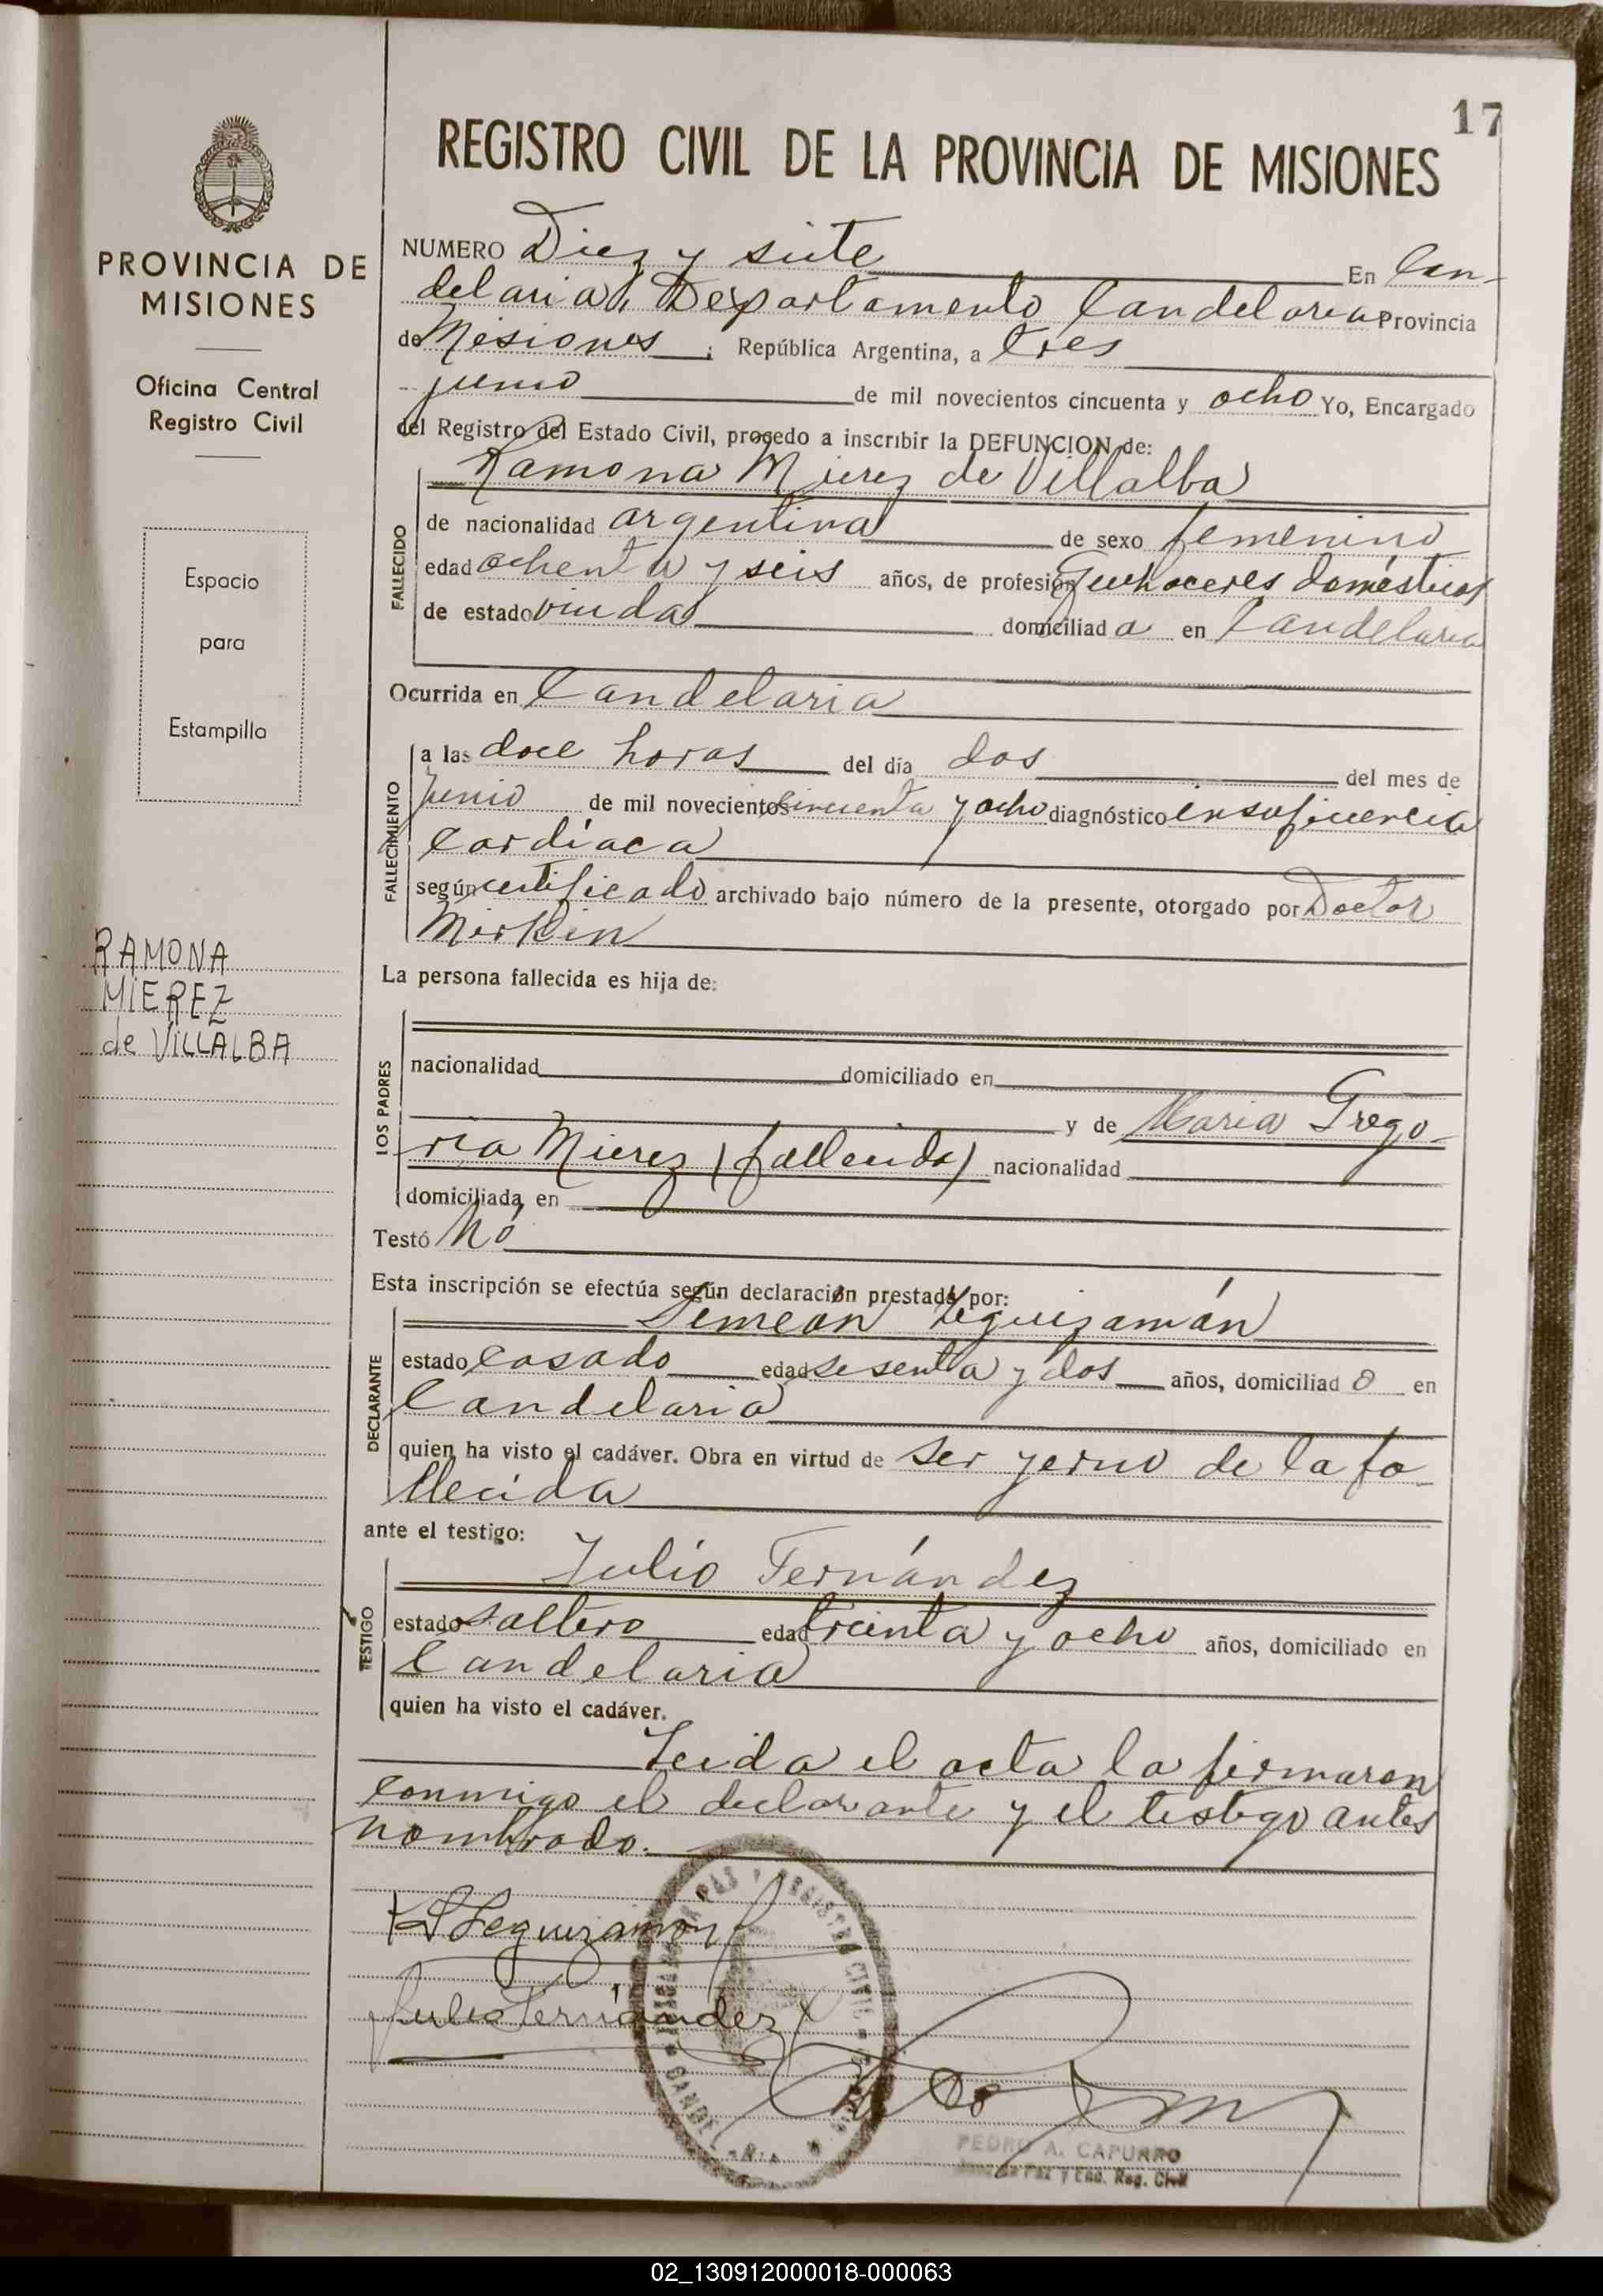 17
REGISTRO CIVIL DE LA PROVINCIA DE MISIONES
PROVINCIA DE
MISIONES
Oficina Central
Registro Civil
Espacio
para
Estampilla
RAMONA
MIEREZ
de VILLALBA
NUMERO Diez y siete En Can-
delaria, Departamento Candelaria Provincia
de Misiones ; República Argentina, a tres
junio de mil novecientos cincuenta y ocho Yo, Encargado
del Registro del Estado Civil, procedo a inscribir la DEFUNCION de:
Ramona Mierez de Villalba
FALLECIDO
de nacionalidad argentina de sexo femenino
edad ochenta y seis años, de profesión quehaceres domésticos
de estado viuda domiciliad a en Candelaria
Ocurrida en Candelaria
FALLECIMIENTO
a las doce horas del día dos del mes de
Junio de mil novecientos cincuenta y ocho diagnóstico insuficiencia
cardíaca
según certificado archivado bajo número de la presente, otorgado por Doctor
Mirkin
La persona fallecida es hija de:
LOS PADRES
nacionalidad domiciliado en
y de Maria Grego-
ria Mierez (fallecida) nacionalidad
domiciliada en
Testó Nó
Esta inscripción se efectúa según declaración prestada por:
Simeón Leguizamón
DECLARANTE
estado casado edad sesenta y dos años, domiciliad o en
Candelaria
quien ha visto el cadáver. Obra en virtud de ser yerno de la fa
llecida
ante el testigo:
Julio Fernández
TESTIGO
estado soltero edad treinta y ocho años, domiciliado en
Candelaria
quien ha visto el cadáver.
Leida el acta la firmaron
conmigo el declarante y el testigo antes
nombrado.
Leguizamón
Julio Fernández
PEDRO A. CAPURRO
Juez de Paz y Enc. Reg. Civil
02_130912000018-000063